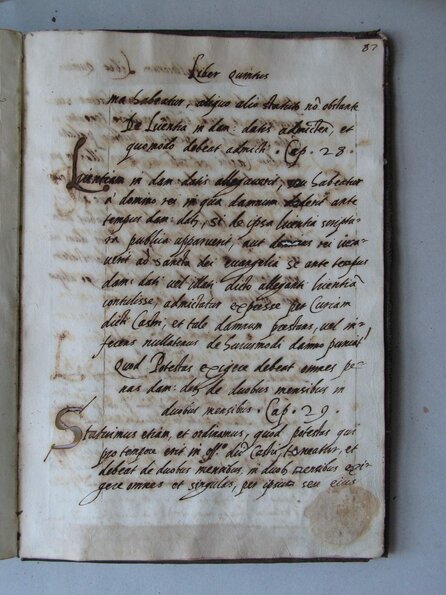 87
Liber Quintus
ma habeatur, aliquo alio statuto nō obstante
De licentia in dam: datis admitten, et
quomodo debeat admitti. Cap. 28.
Licentiam in dam: datis allegaverit, seu habeatur
a domino rei in qua damnum dederit ante
tempus dam: dati, si de ipsa licentia scriptu-
ra publica apparuerit, aut rei iura-
verit ad sancta dei evangelia se ante tempus
dam: dati vel dan: dicto alleganti licentiā
contulisse, admittatur expresse per Curiam
dicti Castri, et tale damnum prestans, vel in-
ferens nullatenus de huiusmodi damno puniat
Quod Potestas exigere debeat omnes pe-
nas dam: datis de duobus mensibus in
duobus mensibus. Cap. 29.
Statuimus etiam, et ordinamus, quod potestas qui
pro tempore erit in off.º dicti Castri, teneatur, et
debeat de duobus mensibus, in duob mensibus exi-
gere omnes et singulas, per ipsum seu eius